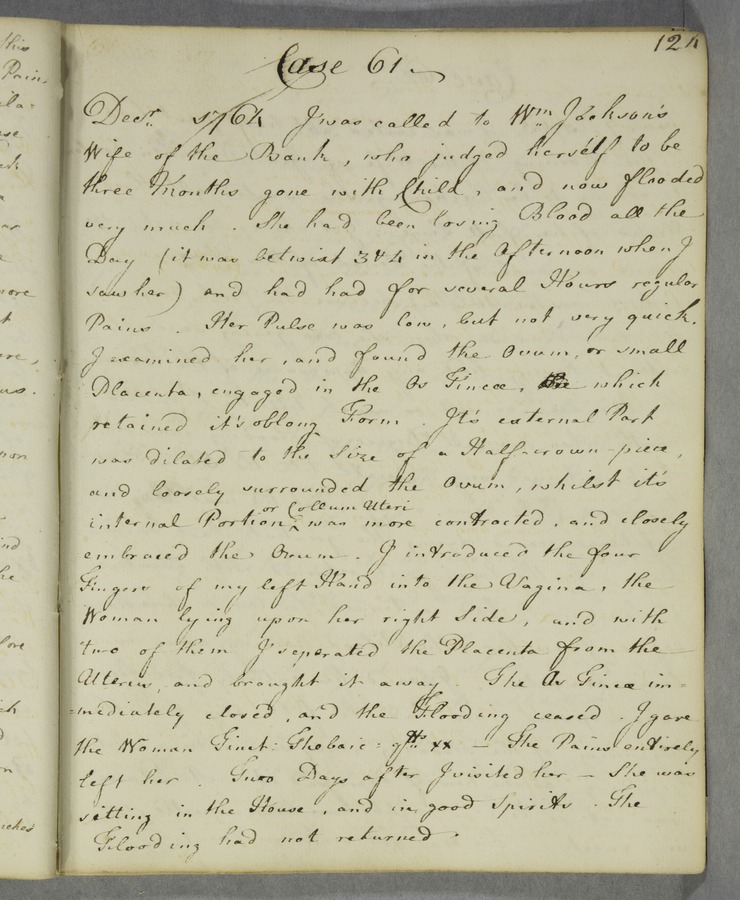 124
Case 61
Decr. 1764 I was called to Wm. Jackson's
Wife of the Bank, who judged herself to be
three Months gone with Child, and now flooded
very much. She had been losing Blood all the
Day (it was betwixt 3 & 4 in the Afternoon when I
saw her) and had had for several Hours regular
Pains. Her Pulse was low, but not very quick.
I examined her, and found the Ovum, or small
Placenta, engaged in the Os Tincæ, which
retained it's oblong Form. It's external Part
was dilated to the Size of a Half-crown-piece,
and loosely surrounded the Ovum, whilst it's
internal Portion or Collum Uteri was more contracted, and closely
embraced the Ovum. I introduced the four
Fingers of my left Hand into the Vagina, the
Woman lying upon her right Side, and with
two of them I seperated the Placenta from the
Uterus, and brought it away. The Os Tincæ im=
=mediately closed, and the Flooding ceased. I gave
the Woman Tinct: Thebaic: gtts xx — The Pains entirely
left her. Two Days after I visited her — She was
sitting in the House, and in good Spirits. The
Flooding had not returned.